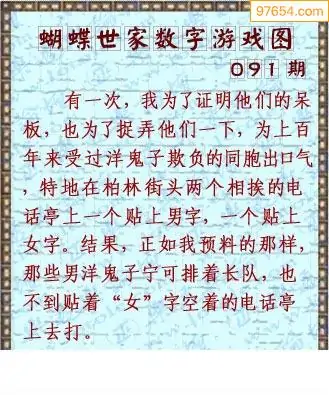 97654.com
蝴蝶世家数字游戏图
091期
有一次，我为了证明他们的呆
板，也为了捉弄他们一下，为上百
年来受过洋鬼子欺负的同胞出口气
，特地在柏林街头两个相挨的电
话亭上一个贴上男字，一个贴上
女字。结果，正如我预料的那样，
那些男洋鬼子宁可排着长队，也
不到贴着“女”字空着的电话亭
上去打。